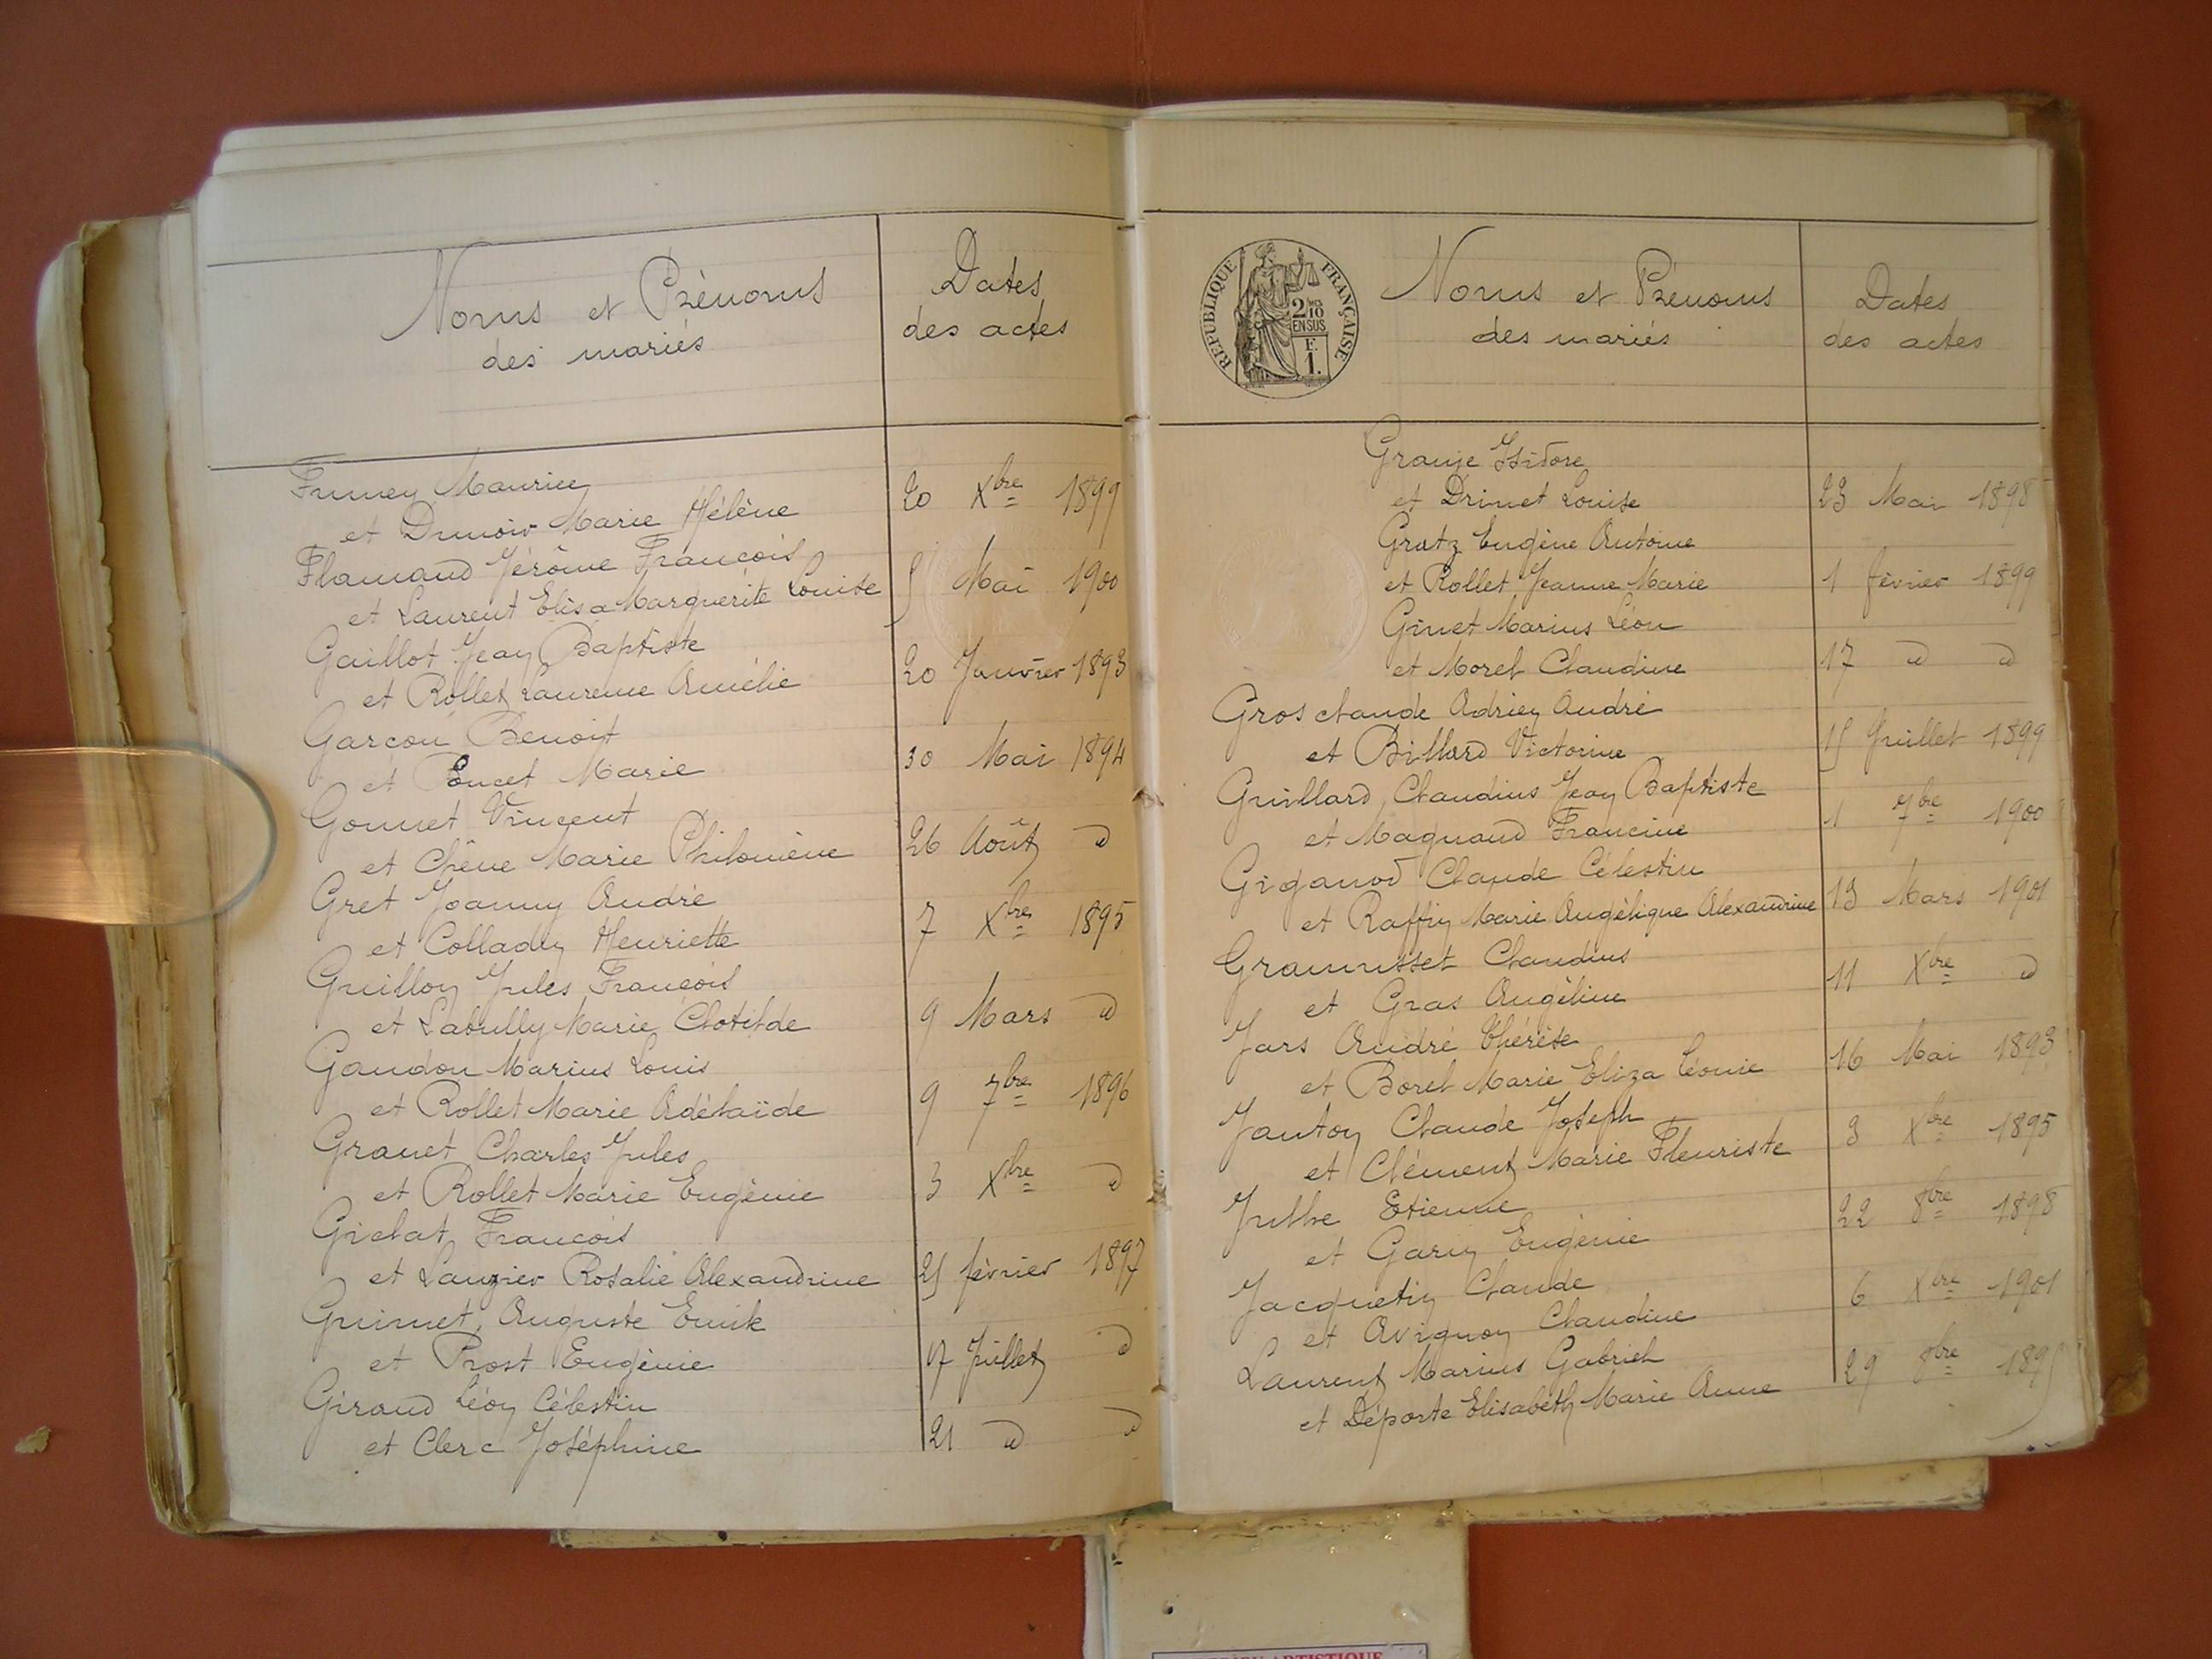 Noms et Prénoms
des mariés
Dates
des actes
Fumey Maurice
et Dunoir Marie Hélène
20 Xbre 1899
Flamand Jérôme François
et Laurent Elisa Marguerite Louise
5 Mai 1900
Gaillot Jean Baptiste
et Rollet Laurence Amélie
20 Janvier 1893
Garçon Benoit
et Poncet Marie
30 Mai 1894
Gonnet Vincent
et Chêne Marie Philomène
26 Août d
Gret Joanny André
et Colladin Henriette
7 Xbre 1895
Guillon Jules François
et Labully Marie Clotilde
9 Mars d
Gandon Marius Louis
et Rollet Marie Adélaïde
9 7bre 1896
Granet Charles Jules
et Rollet Marie Eugénie
3 Xbre d
Gichat François
et Lauzier Rosalie Alexandrine
25 février 1897
Guimet, Auguste Emile
et Prost Eugénie
17 Juillet d
Giraud Léon Célestin
et Clerc Joséphine
21 d d
REPUBLIQUE FRANÇAISE
2/10
EN SUS
F.
1.
Noms et Prénoms
des mariés
Dates
des actes
Granje Isidore
et Drinet Louise
23 Mai 1898
Gratz Eugène Antoine
et Rollet Jeanne Marie
1 février 1899
Ginet Marius Léon
et Morel Claudine
17 d d
Grosclaude Adrien André
et Billard Victorine
15 Juillet 1899
Guillard, Claudius Jean Baptiste
et Magnand Francine
1 7bre 1900
Giganod Claude Célestin
et Raffin Marie Angélique Alexandrine
13 Mars 1901
Grammusset Claudius
et Gras Angéline
11 Xbre d
Jars André Thérèse
et Borel Marie Eliza Léonie
16 Mai 1893
Janton Claude Joseph
et Clément Marie Fleuriste
3 Xbre 1895
Julhe Etienne
et Garin Eugénie
22 8bre 1898
Jacquetin Claude
et Avignon Claudine
6 Xbre 1901
Laurent Marius Gabriel
et Déporte Elisabeth Marie Anne
29 8bre 1895